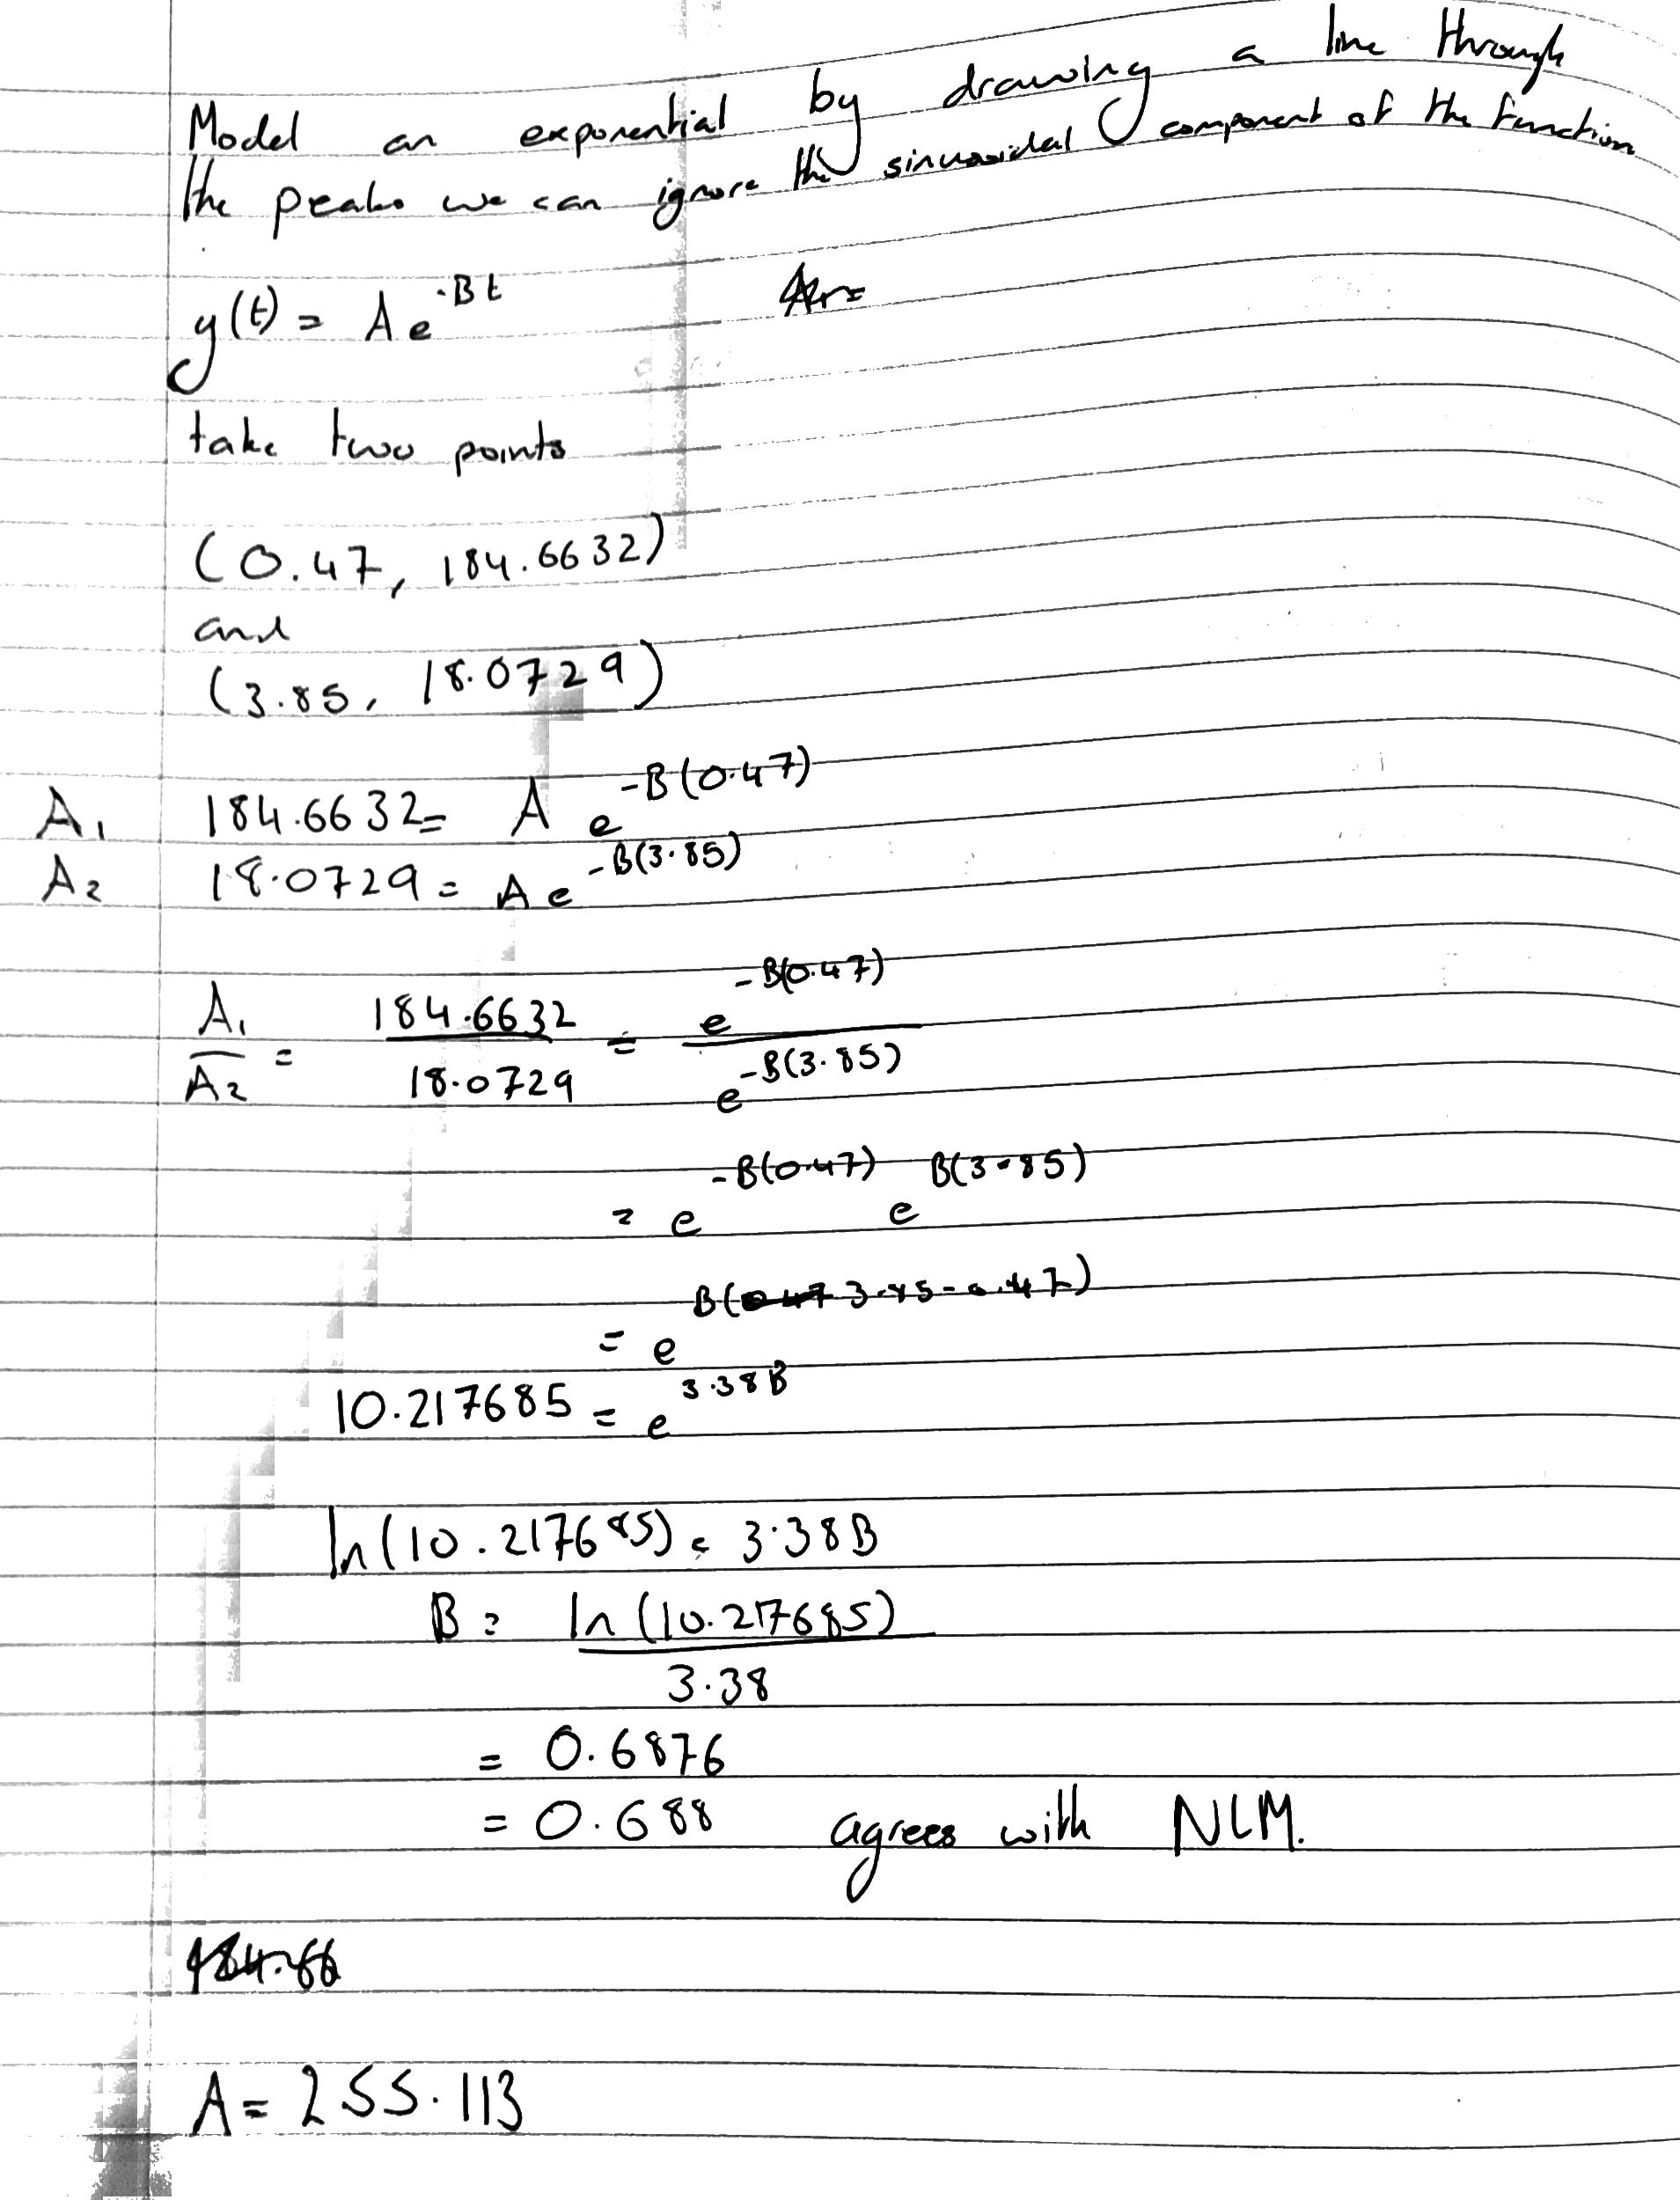 Model an exponential by drawing a line through
the peaks we can ignore the sinusoidal component of the function
y(t) = A e^-Bt
take two points
(0.47, 184.6632)
and
(3.85, 18.0729)
A₁ 184.6632 = A e^-B(0.47)
A₂ 18.0729 = A e^-B(3.85)
A₁/A₂ = 184.6632/18.0729 = e^-B(0.47)/e^-B(3.85)
= e^-B(0.47) e^B(3.85)
= e^B(3.85-0.47)
10.217685 = e^3.38B
ln(10.217685) = 3.38B
B = ln(10.217685)/3.38
= 0.6876
= 0.688 agrees with NLM.
A = 255.113